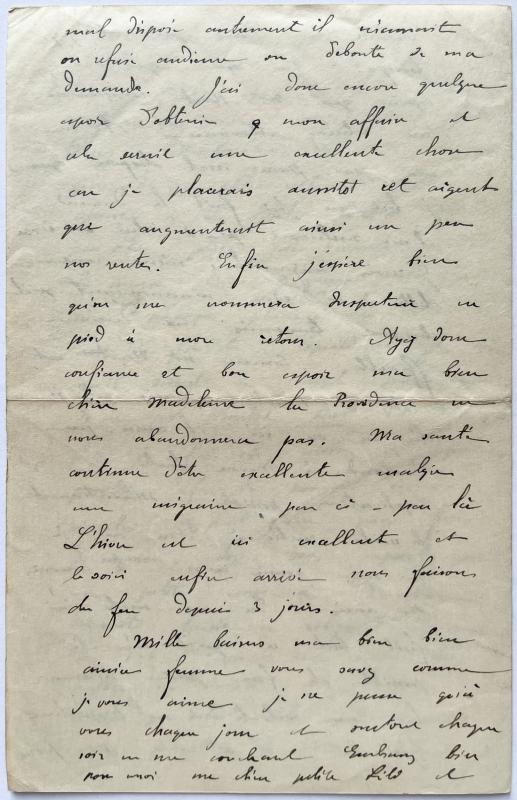 mal disposé autrement il
on refuse audience ou déboute de ma
demande. J'ai donc encore quelque
espoir d'obtenir q mon affaire et
cela serait une excellente chose
car je placerais aussitôt cet argent
qui augmenterait ainsi un peu
nos rentes. Enfin j'espère bien
qu'on me nommera Inspecteur en
pied à mon retour. Ayez donc
confiance et bon espoir ma bien
chère Madeleine la Providence ne
nous abandonnera pas. Ma santé
continue d'être excellente malgré
une migraine par ci - par là
L'hiver est ici excellent et
le voici enfin arrivé nous faisons
du feu depuis 3 jours.
Mille baisers ma bien bien
aimée femme vous savez comme
je vous aime je ne pense qu'à
vous chaque jour et surtout chaque
soir en me couchant Embrassez bien
pour moi ma chère petite Lili et